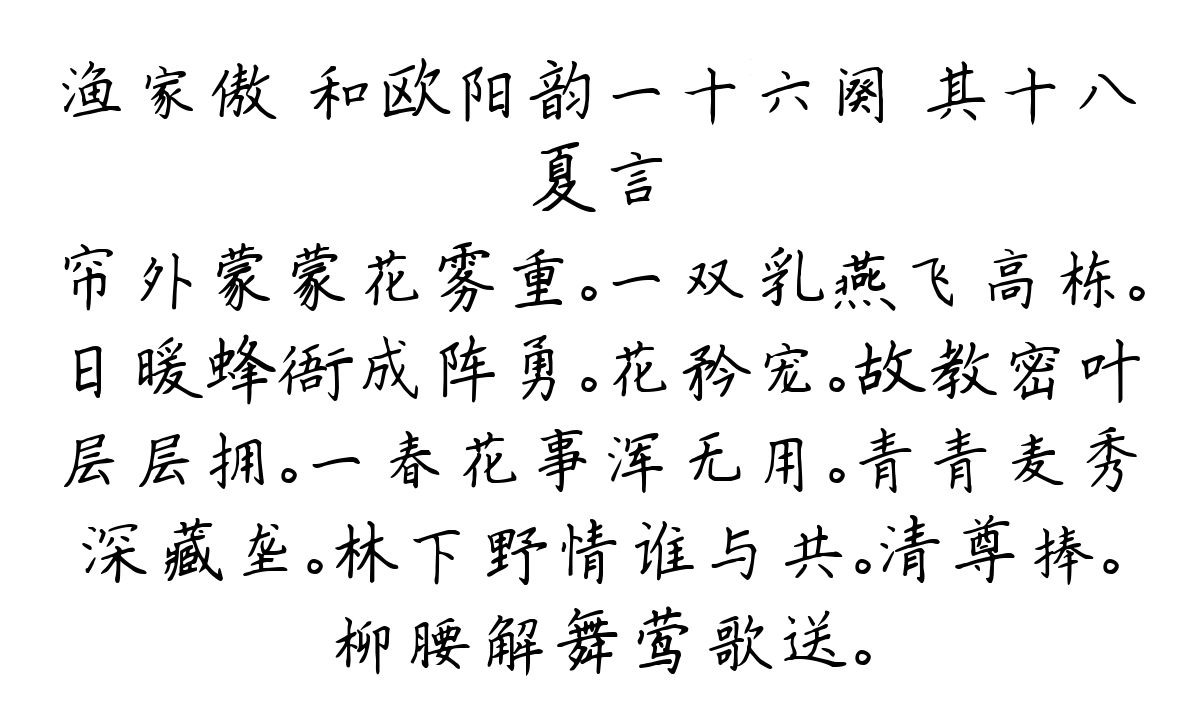 渔家傲 和欧阳韵一十六阕 其十八
夏言
帘外蒙蒙花雾重。一双乳燕飞高栋。
日暖蜂衙成阵勇。花矜宠。故教密叶
层层拥。一春花事浑无用。青青麦秀
深藏垄。林下野情谁与共。清尊捧。
柳腰解舞莺歌送。